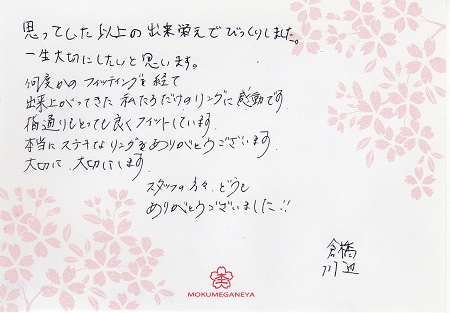 思ってした以上の出来栄えでびっくりしました。
一生大切にしたいと思います。
何度かのフィッティングを経て
出来上がってきた私たちだけのリングに感動です
指通りもとっても良くフィットしています
本当にステキなリングをありがとうございます
大切に大切にします
スタッフの方々、どうも
ありがとうございました!!
倉橋
川辺
MOKUMEGANEYA